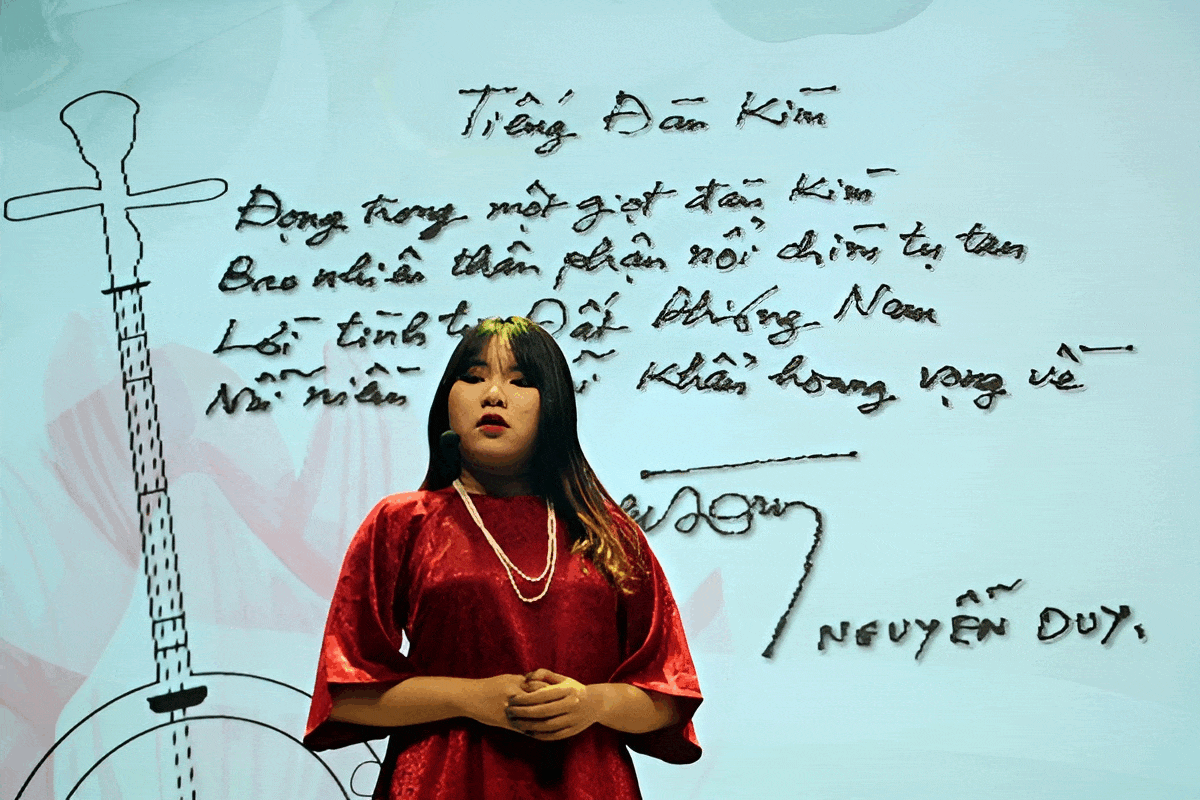 Tiếng Đàn Kìm
Đọng trong một giọt đàn Kìm
Bao nhiêu thân phận nổi chìm tụ tan
Lời tình tự Đất Phương Nam
Nỗi niềm khẩn hoang vọng về
NGUYỄN DUY.